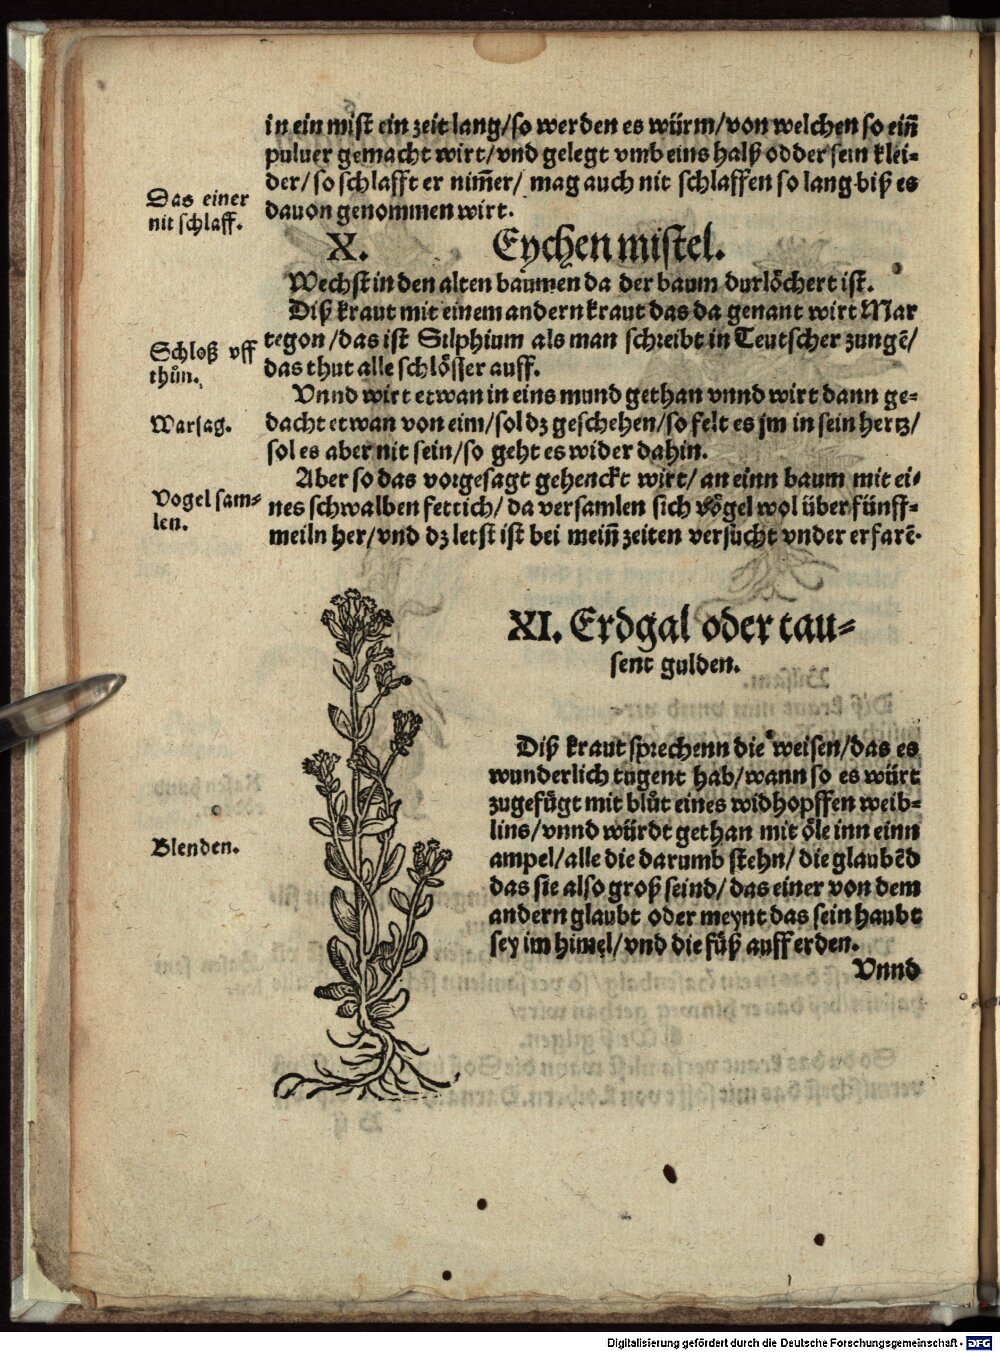 in ein mist ein zeit lang/so werden es würm/von welchen so ein̄
puluer gemacht wirt/vnd gelegt vmb eins halß odder sein klei⸗
der/so schlafft er nim̄er/ mag auch nit schlaffen so lang biß es
dauon genommen wirt.
Das einer
nit schlaff.
X. Eychen mistel.
Wechst in den alten baumen da der baum durlöchert ist.
Diß kraut mit einem andern kraut das da genant wirt Mar
tegon/das ist Silphium als man schreibt in Teutscher zungē/
das thut alle schlösser auff.
Schloß vff
thůn.
Vnnd wirt etwan in eins mund gethan vnnd wirt dann ge⸗
dacht etwan von eim/sol dz geschehen/so felt es jm in sein hertz/
sol es aber nit sein/so geht es wider dahin.
Warsag.
Aber so das vorgesagt gehenckt wirt/an einn baum mit ei⸗
nes schwalben fettich/da versamlen sich vögel wol über fünff⸗
meiln her/vnd dz letst ist bei mein̄ zeiten versucht vnder erfarē.
Vogel sam⸗
len.
XI. Erdgal oder tau⸗
sent gulden.
Diß kraut sprechenn die weisen/das es
wunderlich tugent hab/wann so es würt
zugefügt mit blůt eines widhopffen weib⸗
lins/vnnd würdt gethan mit öle inn einn
ampel/alle die darumb stehn/die glaubēd
das sie also groß seind/das einer von dem
andern glaubt oder meynt das sein haubt
sey im him̄el/vnd die füß auff erden.
Blenden.
Vnnd
Digitalisierung gefördert durch die Deutsche Forschungsgemeinschaft - DFG